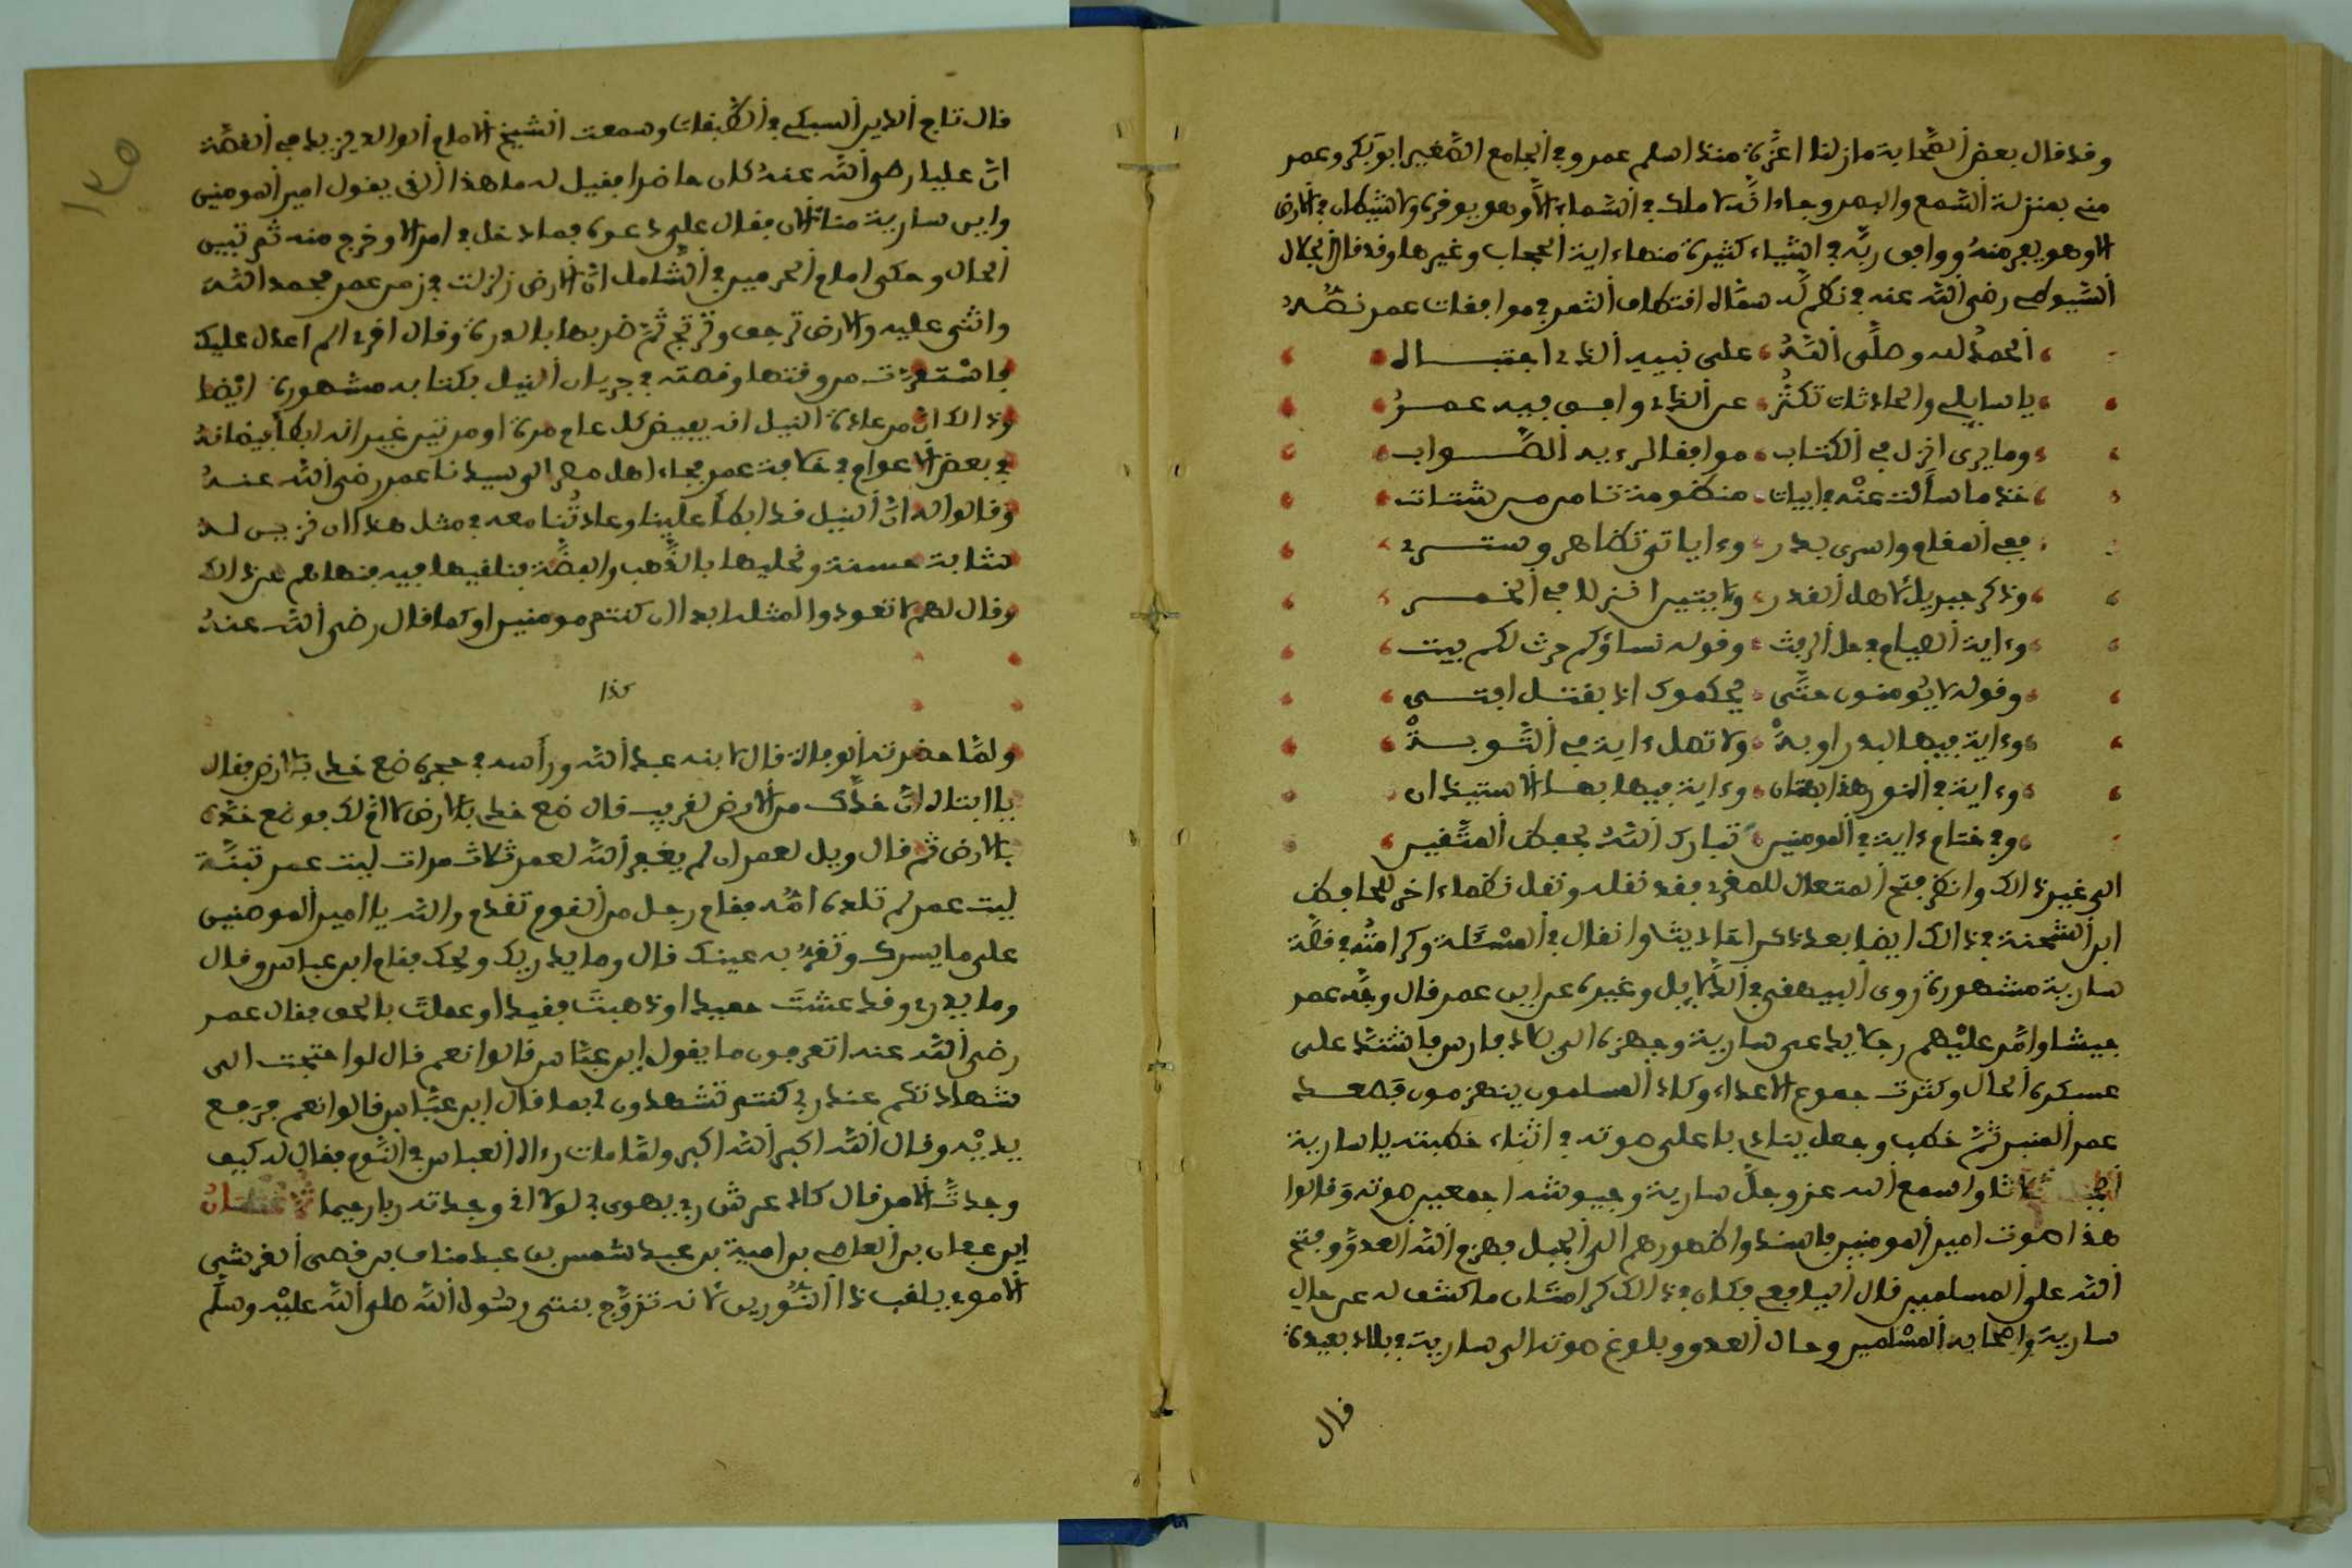 وقد قال بعض الصحابة ما زلنا اعزة منذ اسلم عمر وفي الجامع الصغير ابو بكر وعمر
مني بمنزلة السمع والبصر وجاء انه لا ملك في السماء الا وهو يوقره ولا شيطان في الارض
الا وهو يفر منه ووافق ربه في اشياء كثيرة منها ءاية الحجاب وغيرها وقد قال الجلال
السيوطي رضي الله عنه في نظم له سماه اقتطاف الثمر في موافقات عمر نصه
الحمد لله وصلى الله على نبيه الذي اجتباه
يا سايلي والحادثات تكثر عن الذي وافق فيه عمر
وما يرى انزل في الكتاب موافقا لرءيه الصواب
خذ ما سألت عنه في ابيات منظومة تامن من شتات
ففي المقام واسرى بدر وءاياتي تظاهر وستر
وذكر جبريل لاهل الغدر وءايتين انزلا في الخمر
وءاية الصيام في حل الرفث وقوله نساؤكم حرث لكم يبث
وقوله لا يؤمنون حتى يحكموك اذ بقتل افتى
وءاية فيها لبدر اوبة ولا تصل ءاية في التوبة
وءاية في النور هذا بهتان وءاية فيها بها الاستيذان
وفي ختام ءاية في المومنين تبارك الله بحفظ المتقين
الى غير ذالك وانظر فتح المتعال للمقري فقد نقله ونقل نظما ءاخر للحافظ
ابن الشحنة في ذالك ايضا بعد ذكر احاديث وانقال في المسئلة وكرامته في قصة
سارية مشهورة روى البيهقي في الدلايل وغيره عن ابن عمر قال وجه عمر
جيشا وامر عليهم رجلا يدعى سارية وجهزه الى بلاد فارس فاشتد على
عسكره الحال وكثرت جموع الاعداء وكاد المسلمون ينهزمون فصعد
عمر المنبر ثم خطب وجعل ينادي باعلى صوته في اثناء خطبته يا سارية
الجبل ثلاثا واسمع الله عز وجل سارية وجيوشه اجمعين صوته وقالوا
هذا صوت امير المومنين فاسندوا ظهورهم الى الجبل فهزم الله العدو وفتح
الله على المسلمين قال اليافعي فكان في ذالك كرامتان ما كشف له عن حال
سارية واصحابه المسلمين وحال العدو وبلوغ صوته الى سارية في بلاد بعيدة
قال
١٣٥
قال تاج الدين السبكي في الطبقات وسمعت الشيخ الامام الوالد يزيد في القصة
ان عليا رضي الله عنه كان حاضرا فقيل له ما هذا الذي يقول امير المومنين
واين سارية منا الان فقال علي دعوه فما دخل في امر الا وخرج منه ثم تبين
الحال وحكى امام الحرمين في الشامل ان الارض زلزلت في زمن عمر فحمد الله
واثنى عليه والارض ترجف وترتج ثم ضربها بالدرة وقال اقري الم اعدل عليك
فاستقرت من وقتها وقصته في جريان النيل بكتابه مشهورة ايضا
وذالك ان من عادة النيل انه يفيض كل عام مرة او مرتين غير انه ابطأ فيضانه
في بعض الاعوام في خلافة عمر فجاء اهل مصر الى سيدنا عمر رضي الله عنه
وقالوا له ان النيل قد ابطأ علينا وعادتنا معه في مثل هذا ان نزين له
شابة حسنة ونحليها بالذهب والفضة فنلقيها فيه فنهاهم عن ذالك
وقال لهم لا تعودوا لمثله ابدا ان كنتم مومنين او كما قال رضي الله عنه
كذا
ولما حضرته الوفاة قال لابنه عبد الله ورأسه في حجره ضع خدي بالارض فقال
يا ابتاه ان خدك من الارض لقريب قال ضع خدي بالارض لا ام لك فوضع خده
بالارض ثم قال ويل لعمر ان لم يغفر الله لعمر ثلاث مرات ليت عمر تبنة
ليت عمر لم تلده امه فقام رجل من القوم تقدم والله يا امير المومنين
على ما يسرك وتقر به عينك قال وما يدريك ويحك فقام ابن عباس وقال
وما يدري وقد عشت حميدا وذهبت فقيدا وعملت بالحق فقال عمر
رضي الله عنه اتعرفون ما يقول ابن عباس قالوا نعم قال لو احتجت الى
شهادتكم عند ربي كنتم تشهدون لي بما قال ابن عباس قالوا نعم فرفع
يديه وقال الله اكبر الله اكبر ولما مات رءاه العباس في النوم فقال له كيف
وجدت الامر قال كاد عرش ربي يهوي بي لولا اني وجدته ربا رحيما ثم عثمان
ابن عفان بن العاصي بن امية بن عبد شمس بن عبد مناف بن قصي القرشي
الاموي يلقب ذا النورين لانه تزوج بنتي رسول الله صلى الله عليه وسلم